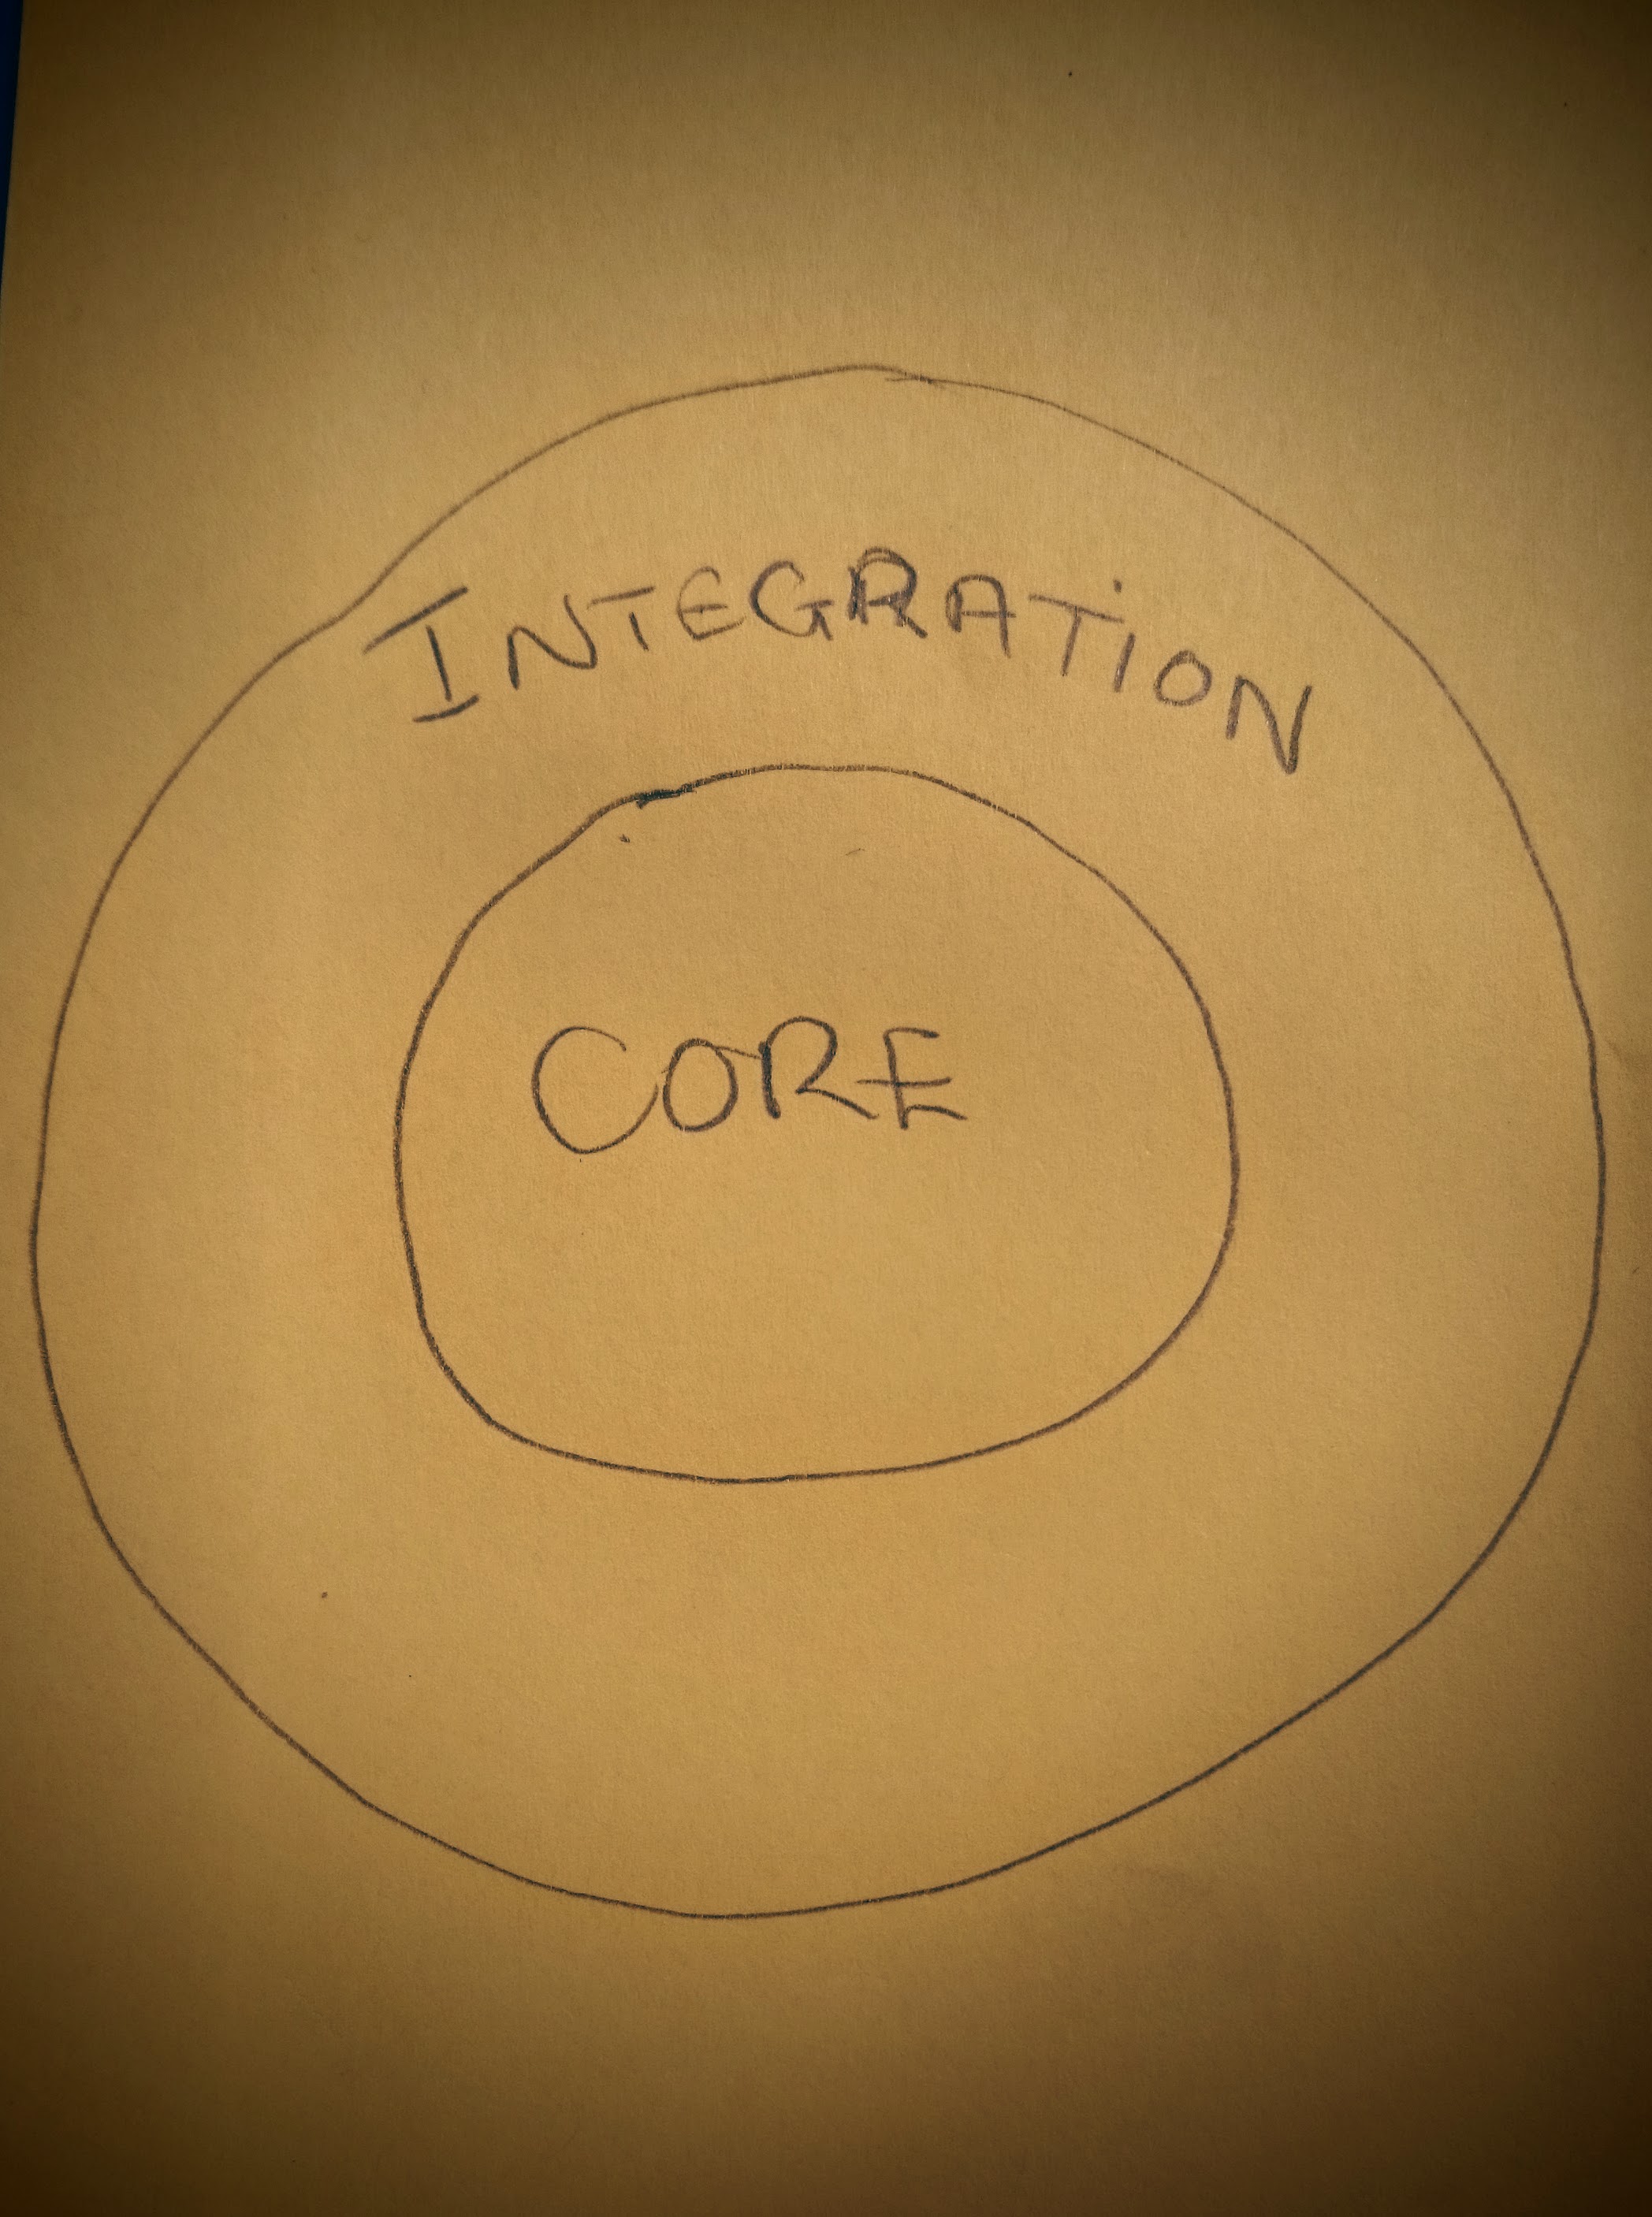 INTEGRATION
CORE